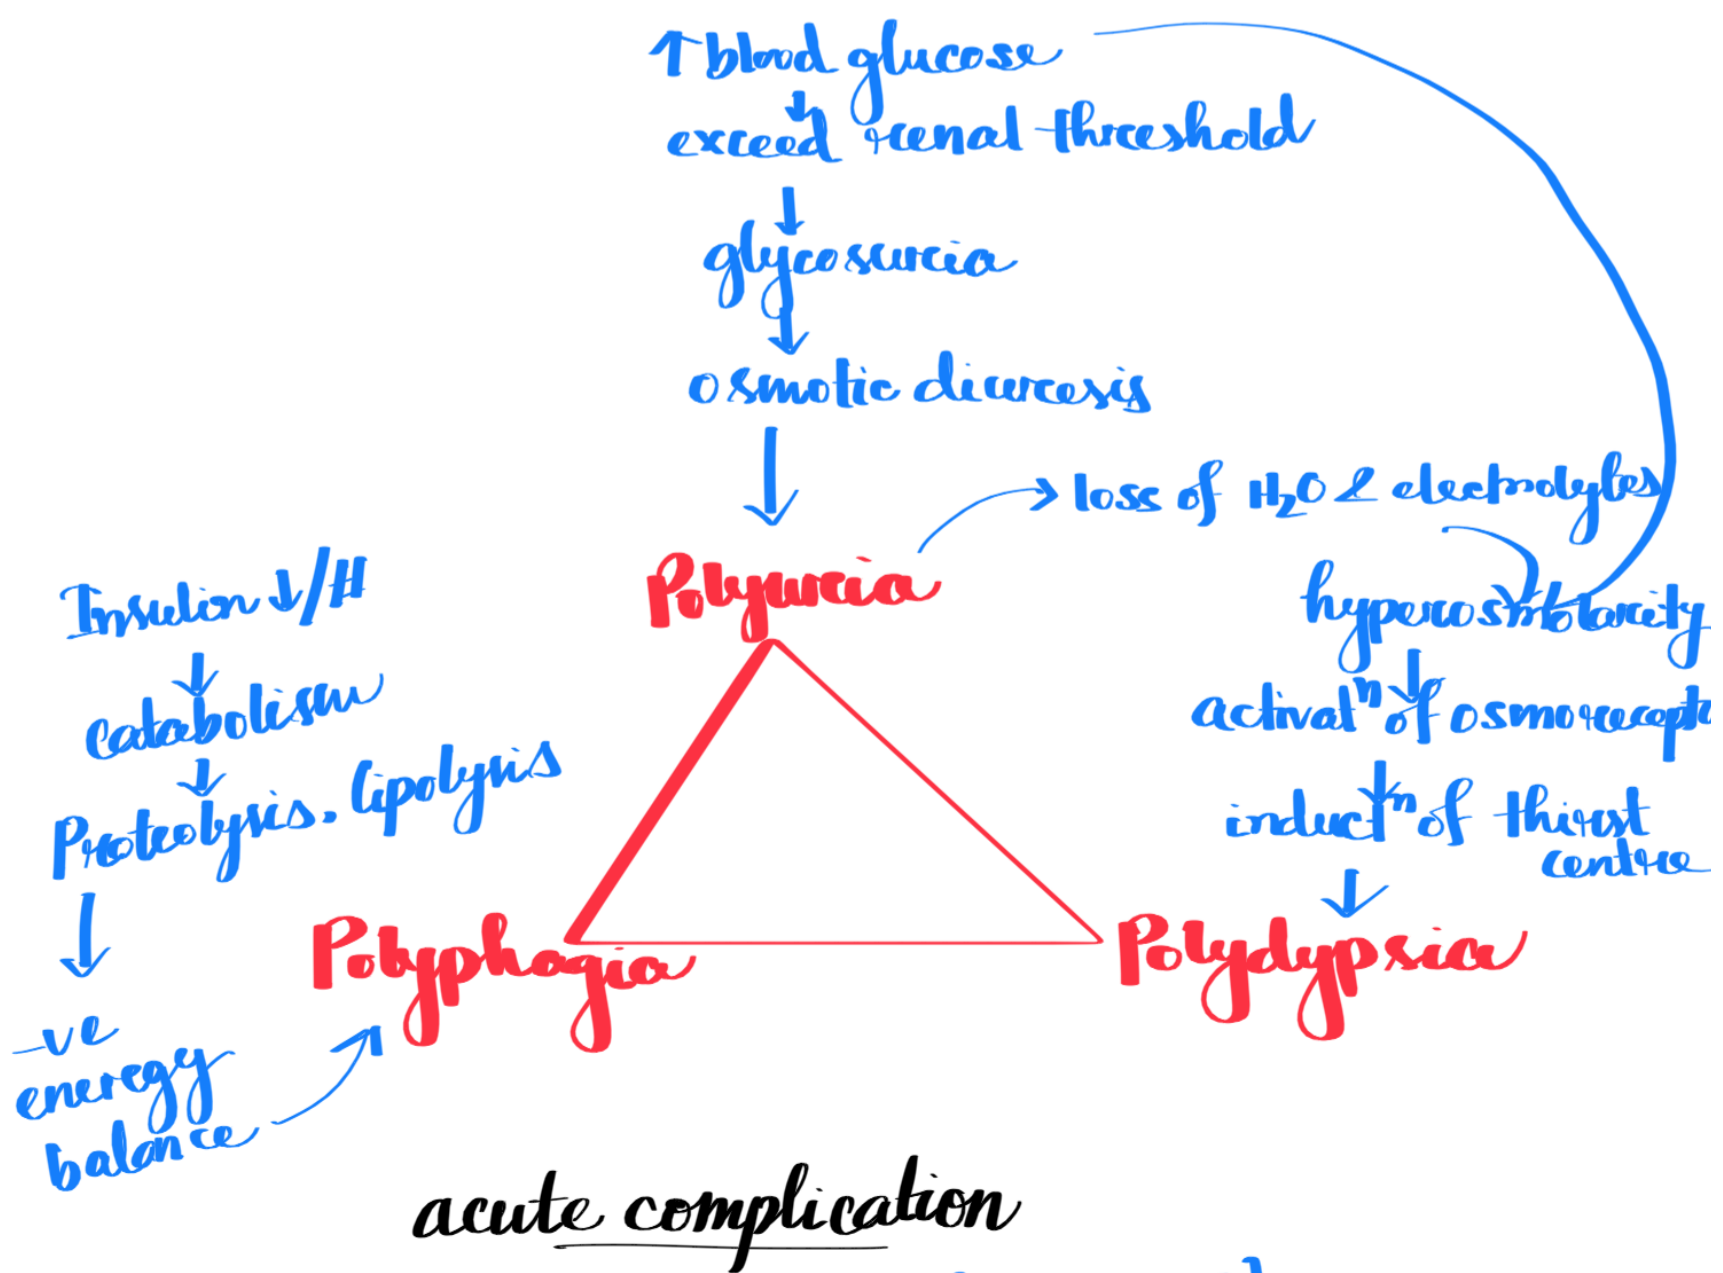 ↑ blood glucose
↓
exceed renal threshold
↓
glycosuria
↓
osmotic diuresis
↓
Polyuria
→ loss of H₂O & electrolytes
hyperosmolarity
↓
activatⁿ of osmorecepto
↓
inductⁿ of thirst
centre
↓
Polydypsia
Insulin ↓/
↓
catabolism
↓
Proteolysis. lipolysis
↓
-ve
energy
balance
Polyphagia
acute complication